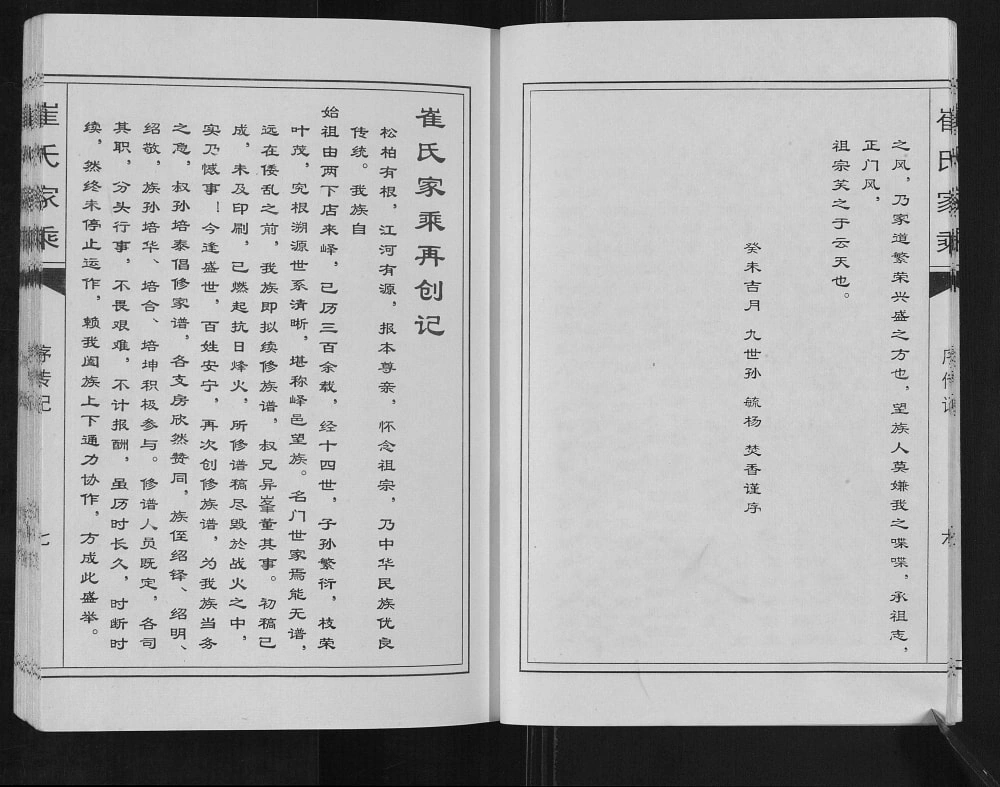 崔氏家乘
序传记
之风，乃家道繁荣兴盛之方也，望族人莫嫌我之喋喋，承祖志，
正门风，
祖宗笑之于云天也。
癸未吉月 九世孙 毓杨 焚香谨序
崔氏家乘再创记
松柏有根，江河有源，报本尊亲，怀念祖宗，乃中华民族优良
传统。我族自
始祖由两下店来峄，已历三百余载，经十四世，子孙繁衍，枝荣
叶茂，究根溯源世系清晰，堪称峄邑望族。名门世家焉能无谱，
远在倭乱之前，我族即拟续修族谱，叔兄异峯董其事。初稿已
成，未及印刷，已燃起抗日烽火，所修谱稿尽毁於战火之中，
实乃憾事！今逢盛世，百姓安宁，再次创修族谱，为我族当务
之急，叔孙培泰倡修家谱，各支房欣然赞同，族侄绍铎、绍明、
绍敬，族孙培华、培合、培坤积极参与。修谱人员既定，各司
其职，分头行事，不畏艰难，不计报酬，虽历时长久，时断时
续，然终未停止运作，赖我阖族上下通力协作，方成此盛举。
崔氏家乘
序传记
七